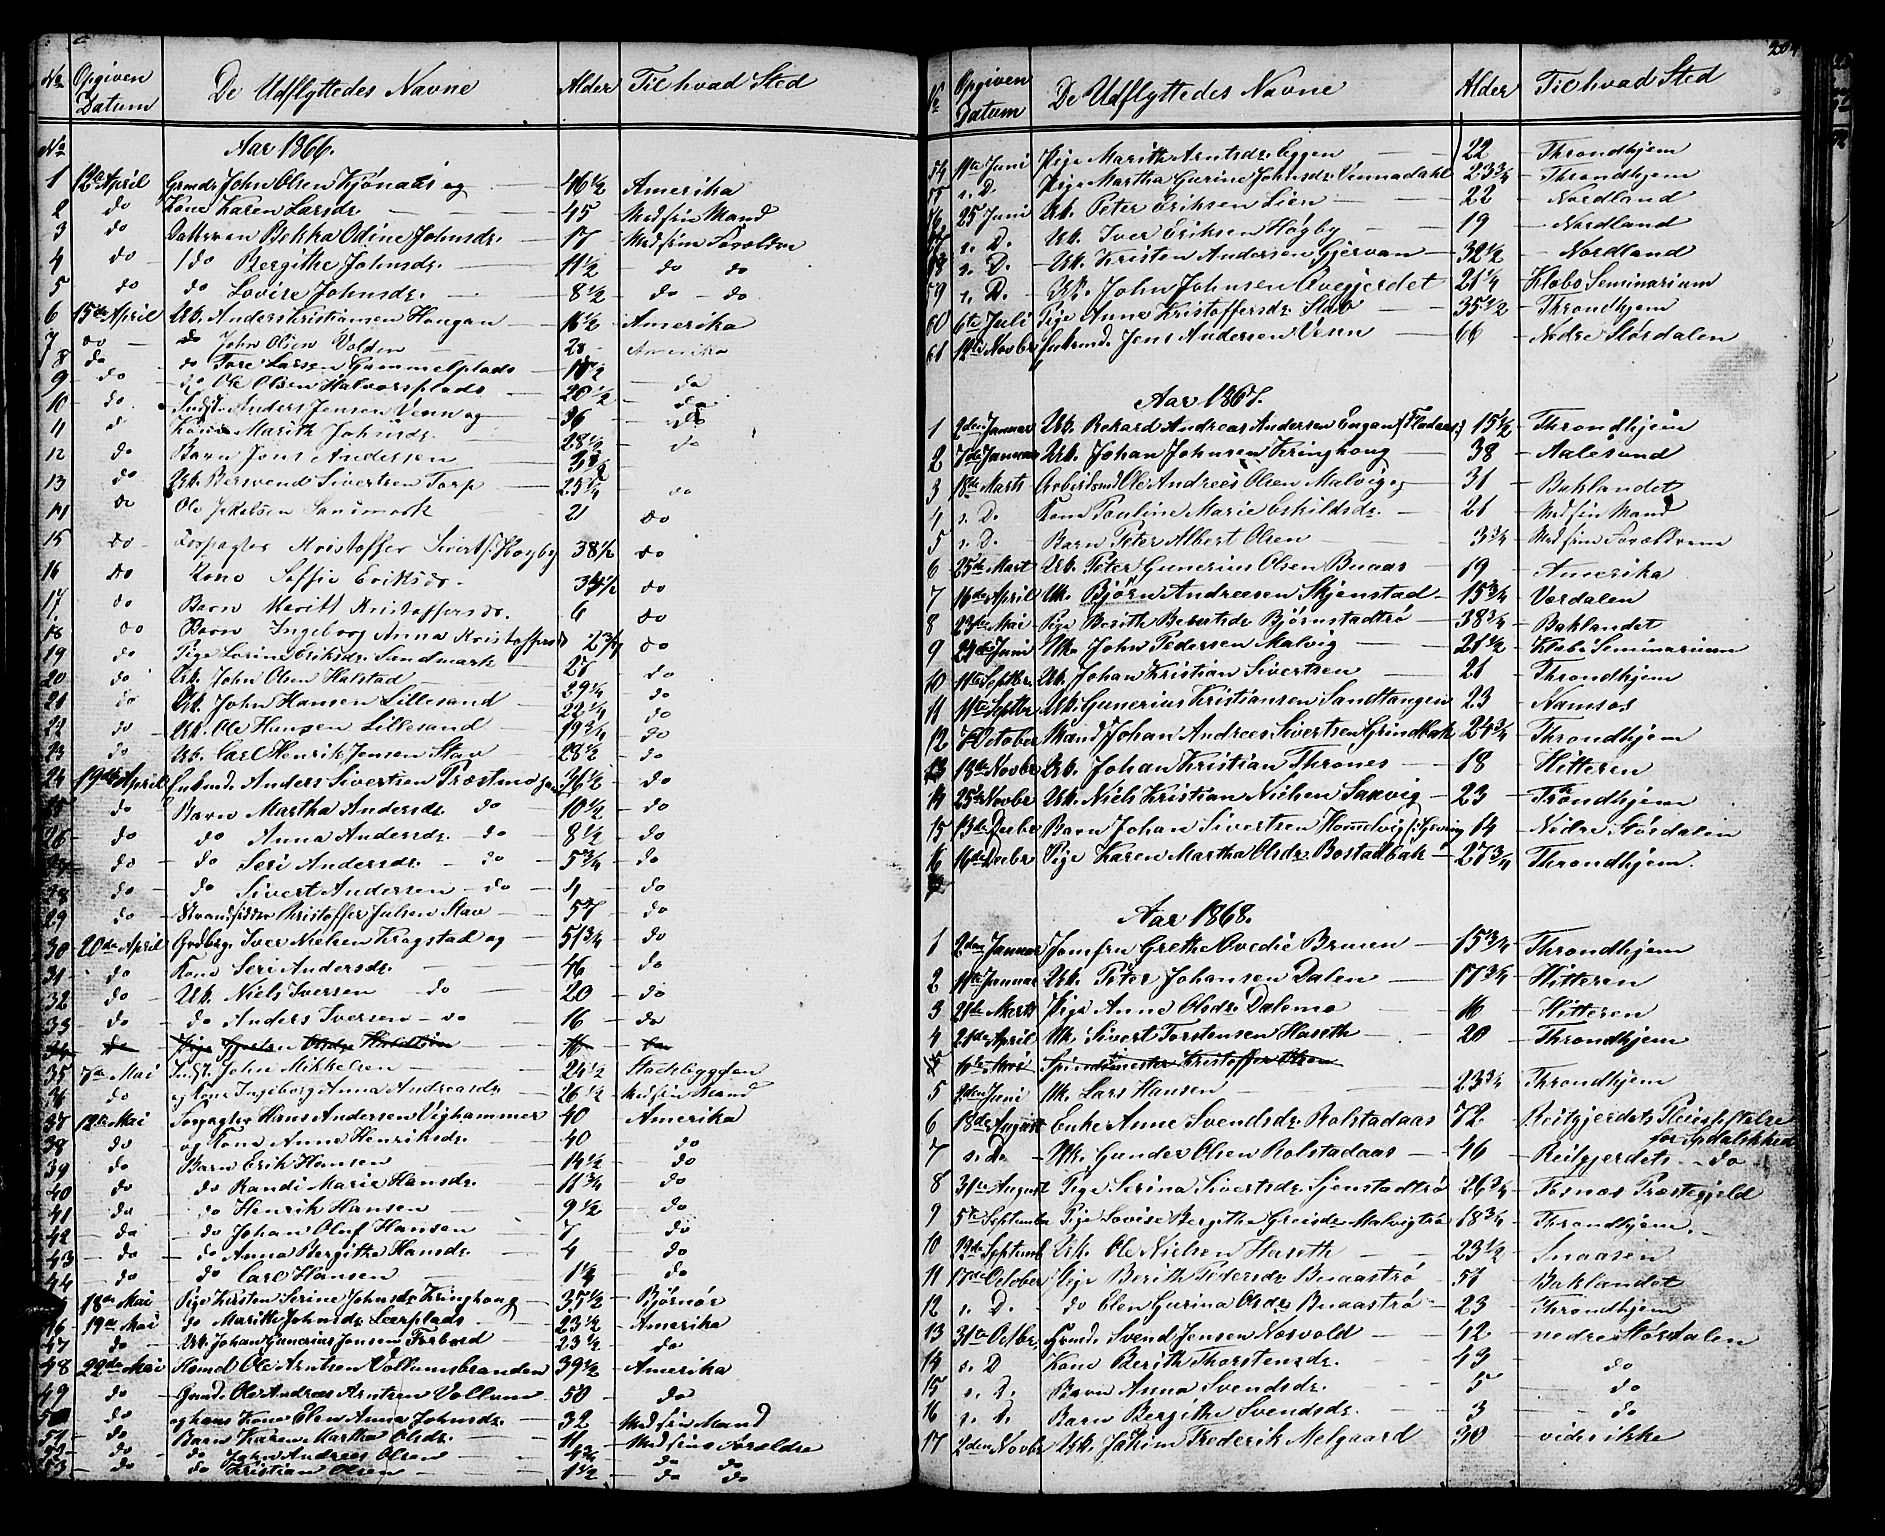 No Opgiven Datum De Udflyttedes Navne Alder Til hvad Sted
No Aar 1866.
1 12te April Grmd. John Olsen Kjønaas og 46 1/2 Amerika
2 do Kone Karen Larsdr. 45 Med sin Mand
3 do Datteren Bekka Odine Johnsdr. 17 Med sine Forældre
4 do do Bergithe Johnsdr. 11 1/2 do do
5 do do Lovise Johnsdr. 8 1/2 do do
6 15de April Uk. Anders Kristiansen Haugan 16 1/2 Amerika
7 do do John Olsen Volden 28 Amerika
8 do do Tore Larsen Gammelplads
9 do do Ole Olsen Halvorsplads 20 1/2 do
10 do Indst. Anders Jensen Venn og 36 do
11 do Kone Marith Johnsdr. 28 1/2 do
12 do Barn Jens Andersen
13 do Uk. Bersvend Sivertsen Torp 25 1/4 do
14 do Ole Sandmark 21 do
15 do Forpagter Kristoffer Siverts. Høgby 38 1/2 do
16 do Kone Soffie Eriksdr. 34 1/2 do
17 do Barn Maritt Kristoffersdr. 6 do
18 do Barn Ingeborg Anna Kristoffersd 2 3/4 do
19 do Pige Lorine Eriksdr. Sandmark 27 do
20 do Uk. John Olsen Halstad 29 1/4 do
21 do Uk. John Hansen Lillesand 22 1/4 do
22 do Uk. Ole Hansen Lillesand 19 3/4 do
23 do Uk. Carl Henrik Jensen Stav 28 1/2 do
24 19de April Enkmd. Anders Sivertsen Præstmo 36 1/2 do
25 do Barn Martha Andersdr do 10 1/2 do
26 do do Anna Andersdr. do 8 1/2 do
27 do do Seri Andersdr. do 5 3/4 do
28 do do Sivert Andersen do 4 do
29 do Strandsidder Christoffer Julsen Stav 57 do
30 20de April Grdbrg. Iver Nielsen Krogstad og 51 3/4 do
31 do Kone Seri Andersdr. 46 do
32 do Uk. Niels Iversen do 20 do
33 do do Anders Iversen do 16 do
34 do Pige
35 7de Mai Indst. John Mikkelsen 24 1/2 Stadsbygden
36 do og Kone Ingeborg Anna Andreasdr 26 1/2 med sin Mand
37 12te Mai Forpagter Hans Andersen Vighammer 40 Amerika
38 do og Kone Anne Henriksdr. 40 do
39 do Barn Erik Hansen 14 1/2 do
40 do do Randi Marie Hansdr. 11 3/4 do
41 do do Henrik Hansen 9 1/2 do
42 do do Johan Oluf Hansen 7 do
43 do do Anna Bergitha Hansdr 4 do
44 do do Carl Hansen 1 1/4 do
45 18de Mai Pige Kirsten Serine Johnsdr Kringhoug 35 1/2 Bjørnør
46 19de Mai do Marith Johnsdr. Leerplads 23 1/2 Amerika
47 do Uk. Johan Gunerius Jensen Forbord 23 1/2 do
48 22de Mai Hsmd. Ole Arntsen Vollumsbranden 39 1/2 Amerika
49 do Grmd. Ole Andreas Arntsen Vollum 50 do
50 do og hans Kone Elen Anna Johnsdr. 32 Med sin Mand
51 do Barn Karen Martha Olsdr. 11 Med sine Forældre
52 do do John Andreas Olsen do do
53 do do Kristian Olsen 1 1/2 do do
204
No Opgiven Datum De Udflyttedes Navne Alder Til hvad Sted
54 11te Juni Pige Marith Arntsdr. Eggen 22 Throndhjem
55 s. D. Pige Martha Gurine Johnsdr. Vennadahl 23 3/4 Throndhjem
56 25 Juni Uk. Peter Eriksen Lien 22 Nordland
57 s. D. Uk. Iver Eriksen Høgby 19 Nordland
58 s. D. Uk. Kristen Andersen Gjervan 32 1/2 Nordland
59 s. D. Uk. John Johnsen Qvegjerdet 21 1/4 Klæbo Seminarium
60 6te Juli Pige Anne Kristoffersdr. Stav 35 1/2 Throndhjem
61 14de Novbr. Enkemd. Jens Andersen Venn 66 Nedre Størdalen
Aar 1867.
1 2den Januar Uk. Rekard Andreas Andersen Engan (Fladaas) 15 1/2 Throndhjem
2 7de Januar Uk. Johan Johnsen Kringhoug 38 Aalesund
3 18de Marts Arbeidsmd. Ole Andreas Olsen Malvig og 31 Baklandet
4 s. D. Kone Pauline Marie Eskildsdr. 21 Med sin Mand
5 s. D. Barn Peter Albert Olsen 3 3/4 Med sine Forældrene
6 25de Mart Uk. Peter Gunerius Olsen Buaas 19 Amerika
7 16de April Uk. Bjørn Andreesen Skjenstad 15 3/4 Værdalen
8 23de Mai Pige Berith Bebertsdr Bjørnstadtrø 38 3/4 Baklandet
9 23de Juni Uk. John Pedersen Malvig 21 1/2 Klæbo Seminarium
10 11te Septbr. Uk. Johan Kristian Sivertsen 21 Throndhjem
11 11te Septbr Uk. Gunerius Kristiansen Sandtangen 23 Namsos
12 7 October Mand Johan Andreas Sivertsen Grindbak 24 3/4 Throndhjem
13 18de Novbr Uk. Johan Kristian Thrones 18 Hitteren
14 25de Novbr Uk. Niels Kristian Nielsen Saxvig 23 Trondhjem
15 13de Decbr Barn Johan Sivertsen Hommelvig (Geving 14 Nedre Størdalen
16 16de Decbr Pige Karen Martha Olsdr. Bostadbak 27 3/4 Throndhjem.
Aar 1868.
1 2den Januar Jomfru Grethe Ovedie Bruun 15 3/4 Throndhjem
2 11te Januar Uk. Peter Johansen Dalen 17 3/4 Hitteren
3 21de Marts Pige Anne Olsdr. Dalemo 16 Hitteren
4 21de April Uk. Sivert Torstensen Haseth 20 Throndhjem
5 6te Mai Kristoffer Olsen
5 2den Juni Uk. Lars Hansen 23 3/4 Throndhjem
6 18de August Enke Anne Svendsdr. Rolstadaas 72 Reitgjerdets Pleiestiftelse for Spedalskhed
7 s. D. Uk. Gunder Olsen Rolstadaas 46 Reitgjerdets do
8 31te August Pige Serina Sivertsdr. Sjenstadtrø 26 3/4 Fosnæs Præstegjeld
9 5te September Pige Lovise Bergitha Greisdr Malvigtrø 18 3/4 Throndhjem.
10 19de Septemb. Uk. Ole Nielsen Haseth 23 1/2 Snaasen
11 17de October Pige Berith Pedersdr. Buaastrø 51 Baklandet
12 s. D. do Elen Gurina Olsdr Buaastrø 23 Throndhjem
13 31te Octbr. Grmd. Svend Jensen Nærvold 42 nedre Størdalen
14 s. D Kone Berith Thorstensdr. 43 do
15 s. D. Barn Anna Svendsdr. 5 do
16 s. D. Barn Bergithe Svendsdr. 3 do
17 2den Novbr Uk. Jakim Frederik Melgaard 30 vides ikke